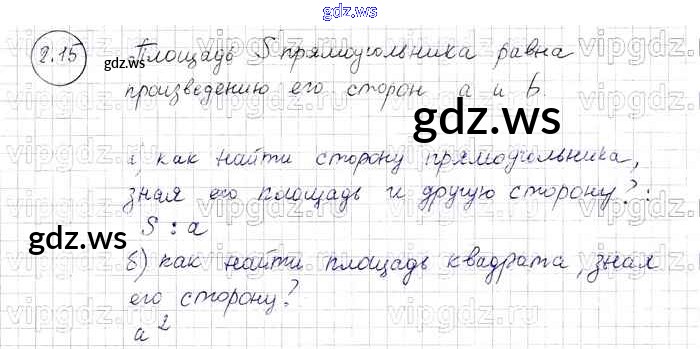 gdz.ws
2.15 Площадь S прямоугольника равна
gdz.ws
произведению его сторон a и b.
gdz.ws
а) как найти сторону прямоугольника,
зная его площадь и другую сторону? :
S : a
gdz.ws
б) как найти площадь квадрата, зная
его сторону?
gdz.ws
a²